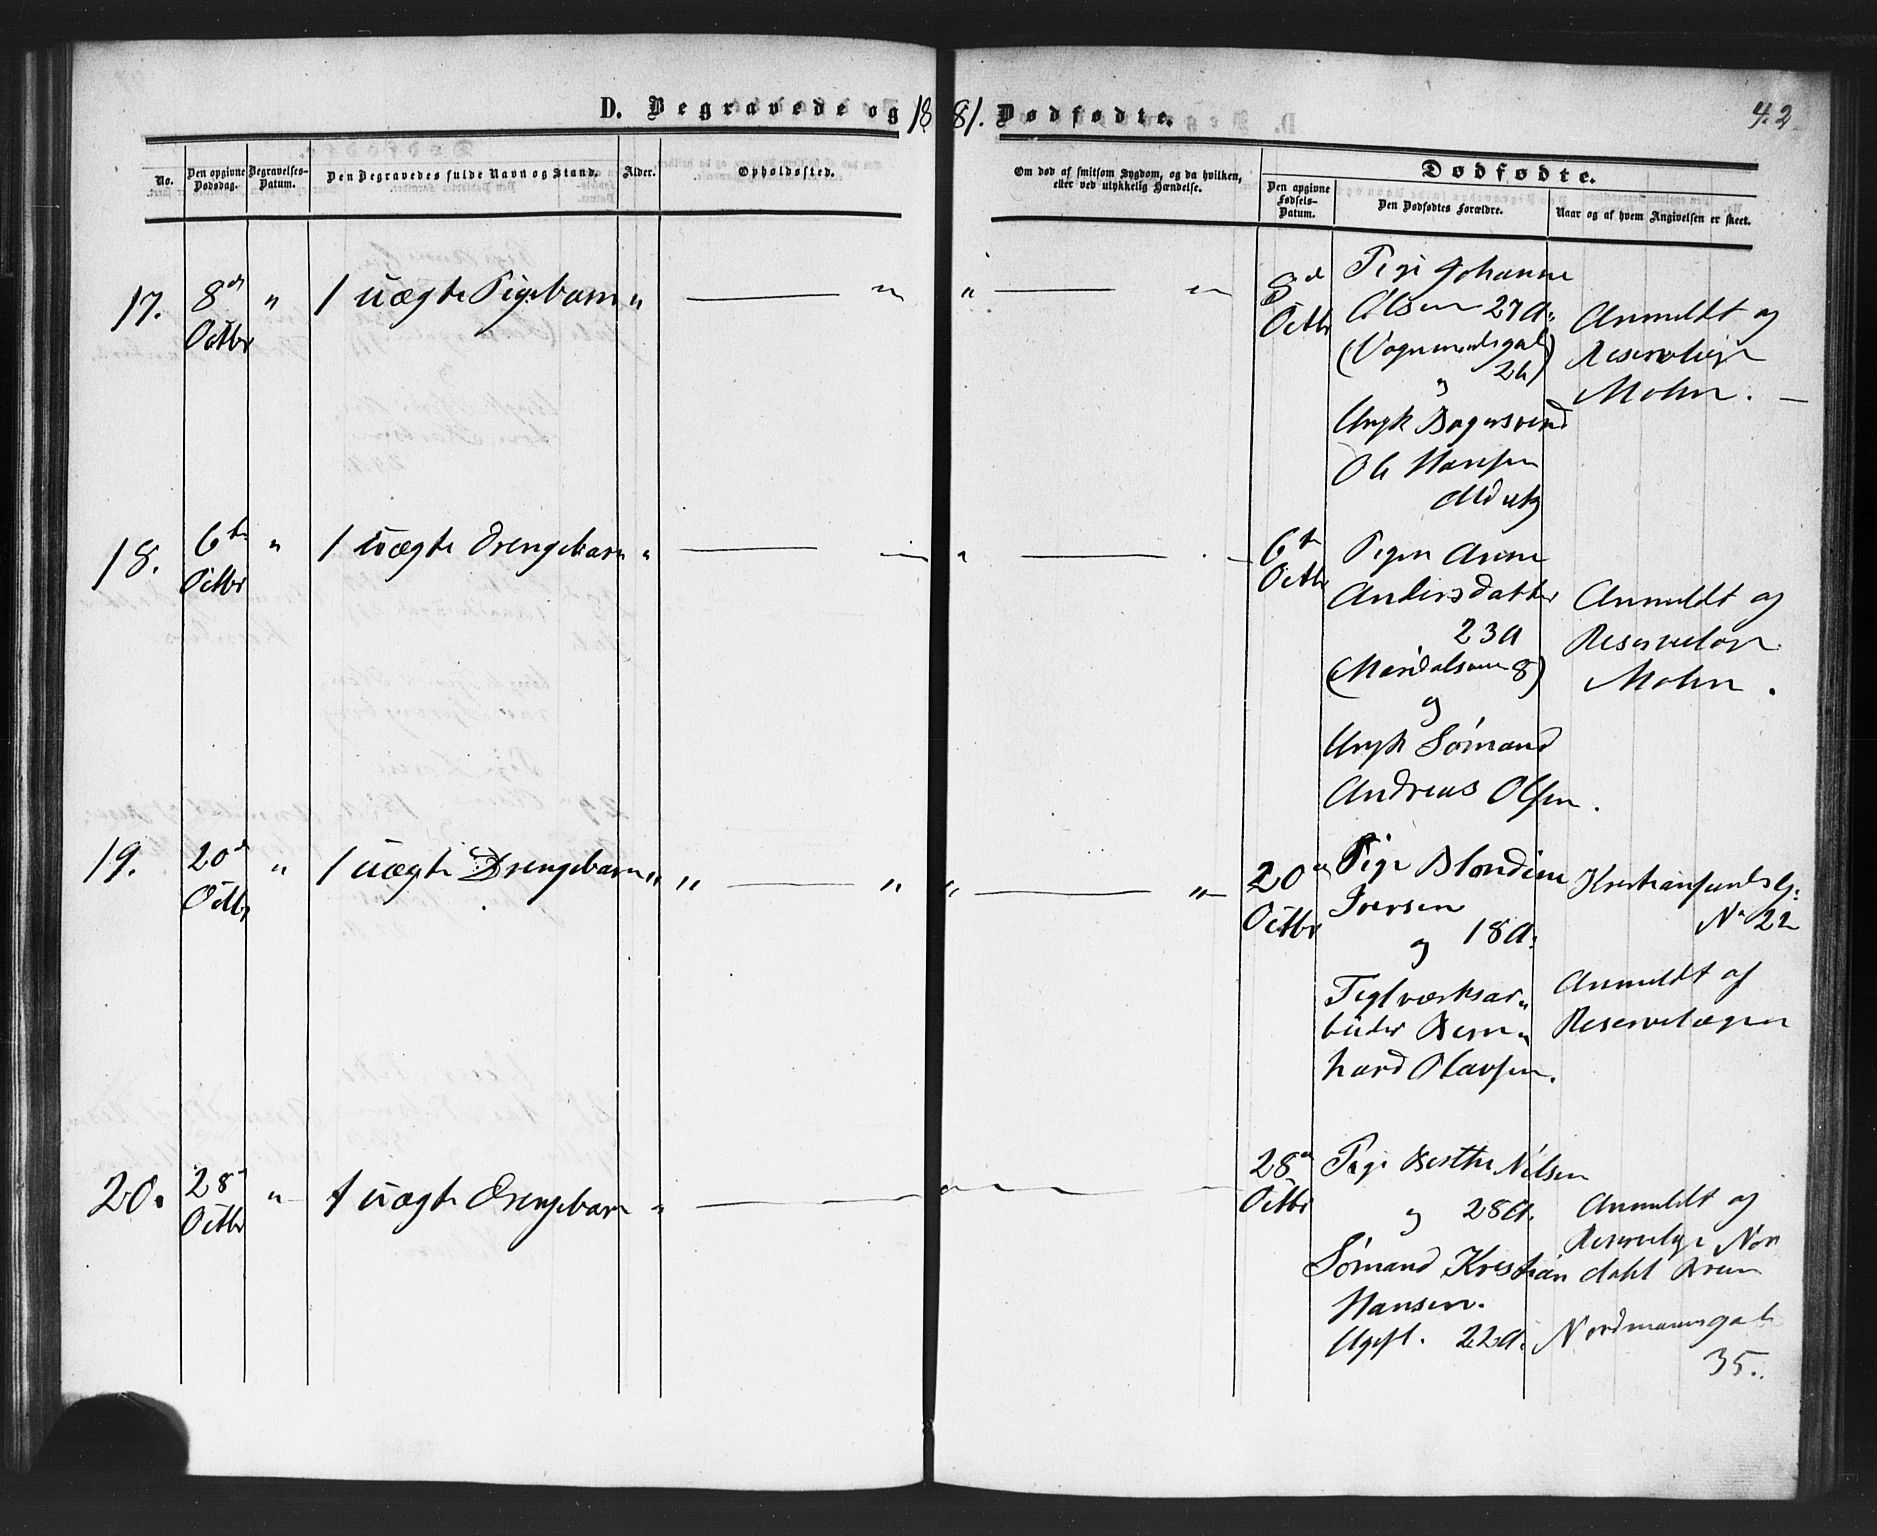 D. Begravede og 1881. Dødfødte. 42
No.
Den opgivne Dødsdag.
Begravelses-Datum.
Den Begravedes fulde Navn og Stand.
Alder.
Opholdssted.
Om død af smitsom Sygdom, og da hvilken, eller ved ulykkelig Hændelse.
Dødfødte.
Den opgivne Fødsels-Datum.
Den Dødfødtes Forældre.
Naar og af hvem Angivelsen er skeet.
17. 8de Octbr " 1 uægte Pigebarn "
8de Octbr
Pige Johanne
Olsen 27 A.
og
Ungk Bagersvend
Ole Hansen
Anmeldt og
Mohn.
18. 6te Octbr " 1 uægte Drengebarn "
6te Octbr
Pigen Anne
Andersdatter
23 A
og
Ungk Sømand
Andreas Olsen.
Anmeldt og
Mohn.
19. 20de Octbr " 1 uægte Drengebarn "
20de Octbr
Pige Blondine
Iversen
og 18 A.
Teglværksar-
beider Bern-
hard Olavsen.
Kristiansundsg.
No 22
Anmeldt af
Reservelægen
20. 28de Octbr " 1 uægte Drengebarn "
28de Octbr
Pige Berthe Nilsen
og 28 A.
Sømand Kristian
Hansen.
Ugift. 22 A.
Anmeldt og
Nordmannsgate
35.